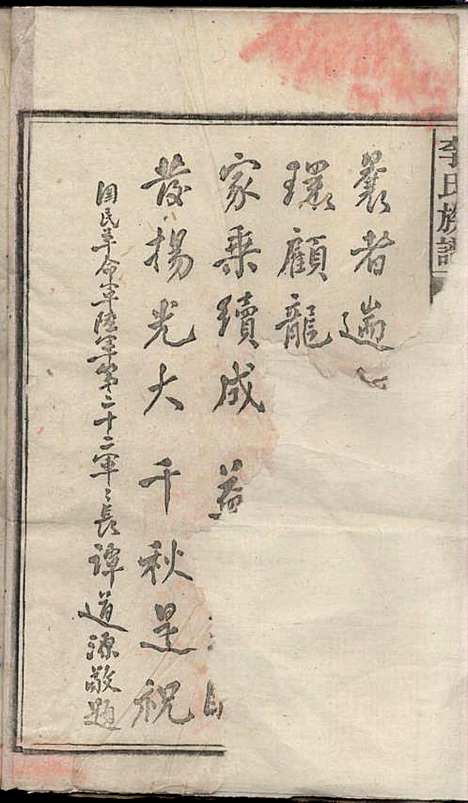 李氏族譜
曩者遄
環顧龍
家乘續成 益
發揚光大 千秋是祝
國民革命軍陸軍第二十二軍々長譚道源敬題